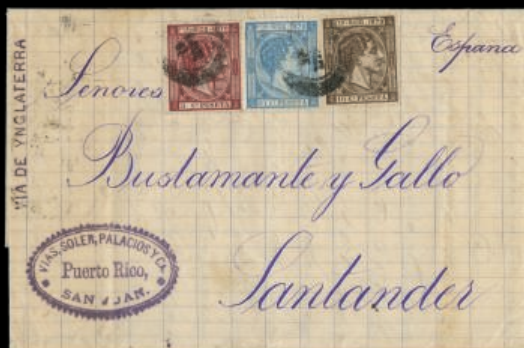 España
VIA DE YNGLATERRA
Señores
Bustamante y Gallo
Santander
VIAS, SOLER, PALACIOS Y CA.
Puerto Rico,
SAN JUAN.